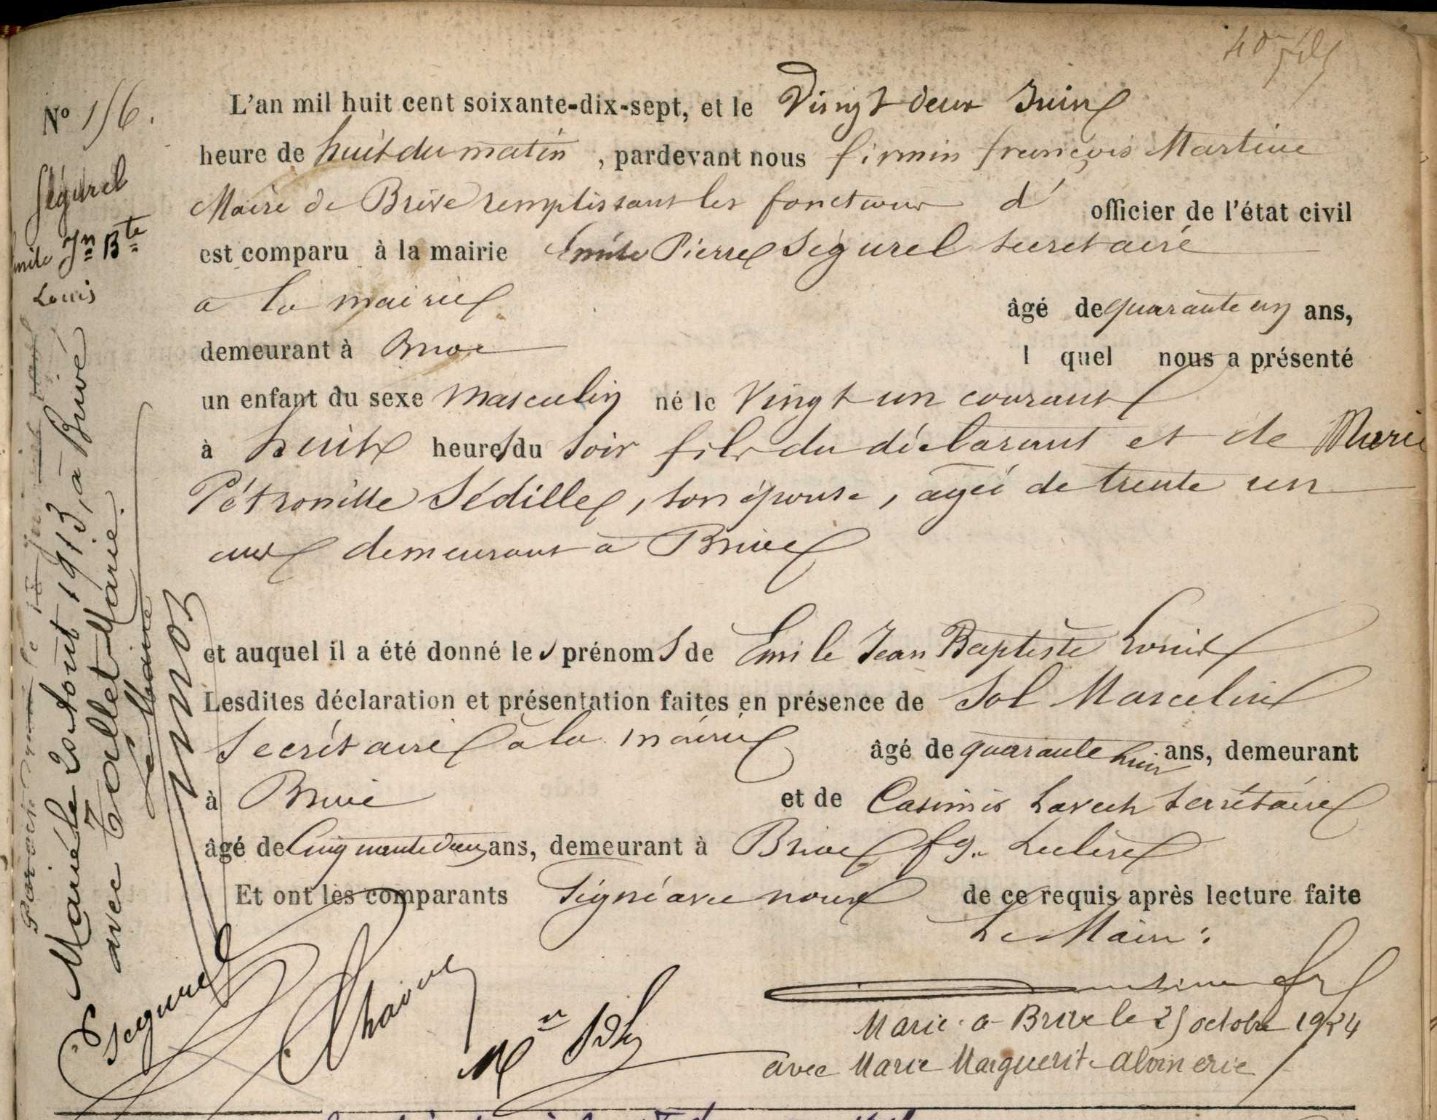 N° 156.
Ségurel
Emile Jn Bte
Louis
L'an mil huit cent soixante-dix-sept, et le Vingt deux Juin
heure de huit du matin, pardevant nous firmin françois Martine
Maire de Brive remplissant les fonctions d' officier de l'état civil
est comparu à la mairie Emile Pierre Ségurel secretaire
a la mairie âgé de quarante un ans,
demeurant à Brive l quel nous a présenté
un enfant du sexe masculin né le Vingt un courant
à huit heures du soir fils du déclarant et de Marie
Pétronille Sédille, son épouse, agée de trente un
ans demeurant a Brive
et auquel il a été donné les prénoms de Emile Jean Baptiste Louis
Lesdites déclaration et présentation faites en présence de Sol Marcelin
Secrétaire à la mairie âgé de quarante huit ans, demeurant
à Brive et de Casimir secrétaire
âgé de Cinquante deux ans, demeurant à Brive fg. Leclere
Et ont les comparants signé avec nous de ce requis après lecture faite
Le Maire:
Segurel
Mn Sol
Marié a Brive le 25 octobre 1924
avec Marie Marguerite
Marié le 20 Aout 1913, à Brive
avec Tallet Marie.
Le Maire